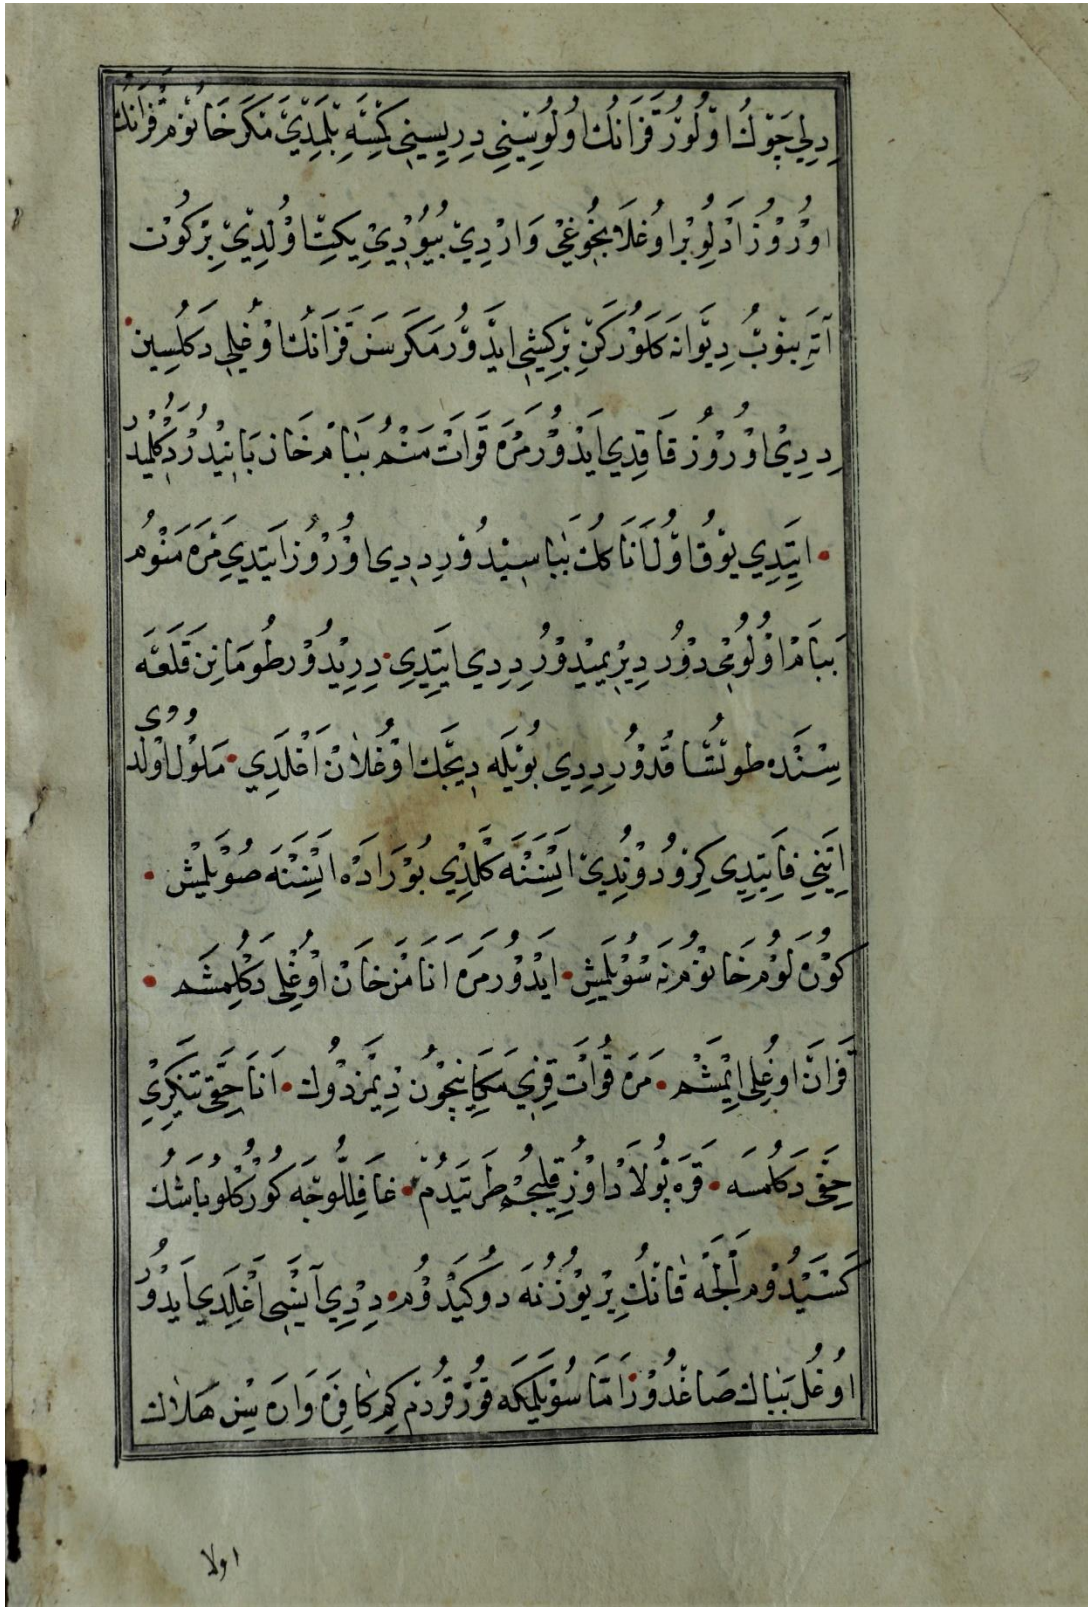 دِلِي چَوْكْ اوْلُوْرُ قَزَانُكْ اُولُوسِيْنِي دِرِيسِينِي كِمْسَهِ بِلْمَدِيْ مَكَرْ خَانُوْمْ قَزَانُكْ
اوُرُوْزْ اَدْلُو بِرْ اوُغْلَانْجُوغِيْ وَارْدِيْ بُيُوْدِيْ يِكِتْ اوْلْدِيْ بِرْ كُوْنْ
آتَهِ بِنُوْبْ دِيْوَانَهْ كَلُوْرْكَنْ بِرْ كِيشِي ايْدُوْرْ مَكَرْ سَنْ قَزَانُكْ اوْغْلِي دَكُلْسِينْ
دِدِيْ اوُرُوْزْ قَاقِدِي اَيْدُوْرْ مَرَه قَوَاتْ مَنُمْ بَبَامْ خَانْ بَايِنْدُرْ دَكُلْمِيْدُرْ
• ايْتِدِي يُوْقْ اوْلْ اَنَاكُكْ بَبَاسِيْدُوْرْ دِدِي اوُرُوْزْ اَيْتِدِي مَرَه مَنُوْمْ
بَبَامْ اوُلُوْمِيْدُوْرْ دِيْرِيمِيْدُوْرْ دِدِي ايْتِدِي • دِرِيْدُوْرْ طُومَانِنْ قَلْعَه
سِنْدَه طُوتْسَاقْدُوْرْ دِدِي بُوْيْلَه دِيْجَكْ اوْغْلَانْ اَغْلَدِي • مَلُوْلْ اوْلْدُوْى
اتِنِي قَايْتِدِي كِرُو دُوْنْدِيْ انَسِنَهْ كَلْدِيْ بُوْرَادَهْ انَسِنَهْ صُوْيْلَمِيْشْ •
كُوْرَهلُوْمْ خَانُوْمْ نَه سُوْيْلَمِيشْ • اَيْدُوْرْ مَرَه انَا مَنْ خَانْ اوُغْلِي دَكُلْمِشَمْ •
قَزَانْ اوُغْلِي اِيْمِشَمْ • مَرَه قُوَاتْ قِزِي مَكَا نِيچُوْنْ دِيْمَزْدُوْكْ • اَنَا حَقِّي تَنْكِرِيْ
حَقِّي دَكُلْمِسَه • قَرَه بُولَادْ اوُزْ قِلِيجُمْ طَرْتَيْدُمْ • غَافِلُّوجَه كُوْرْكُلُو بَاشُكْ
كَسَيْدُوْمْ اَلْجَه قَانْكْ يِرْ يُوْزُنَه دُوكَيْدُوْمْ • دِدِي آنَسِي اَغْلَدِي اَيْدُوْرْ
اوُغُلْ بَبَاكْ صَاغْدُوْرْ اَمَّا سُوْيْلَمَكَه قُوْرْقَرْدُمْ كِمْ كَافِرَه وَارَهسِنْ هَلَاكْ
اولا